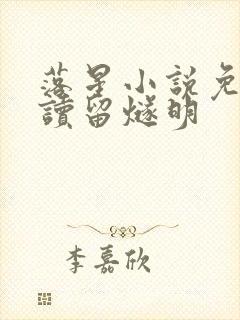 落星小說免
讀留燧明
李嘉欣